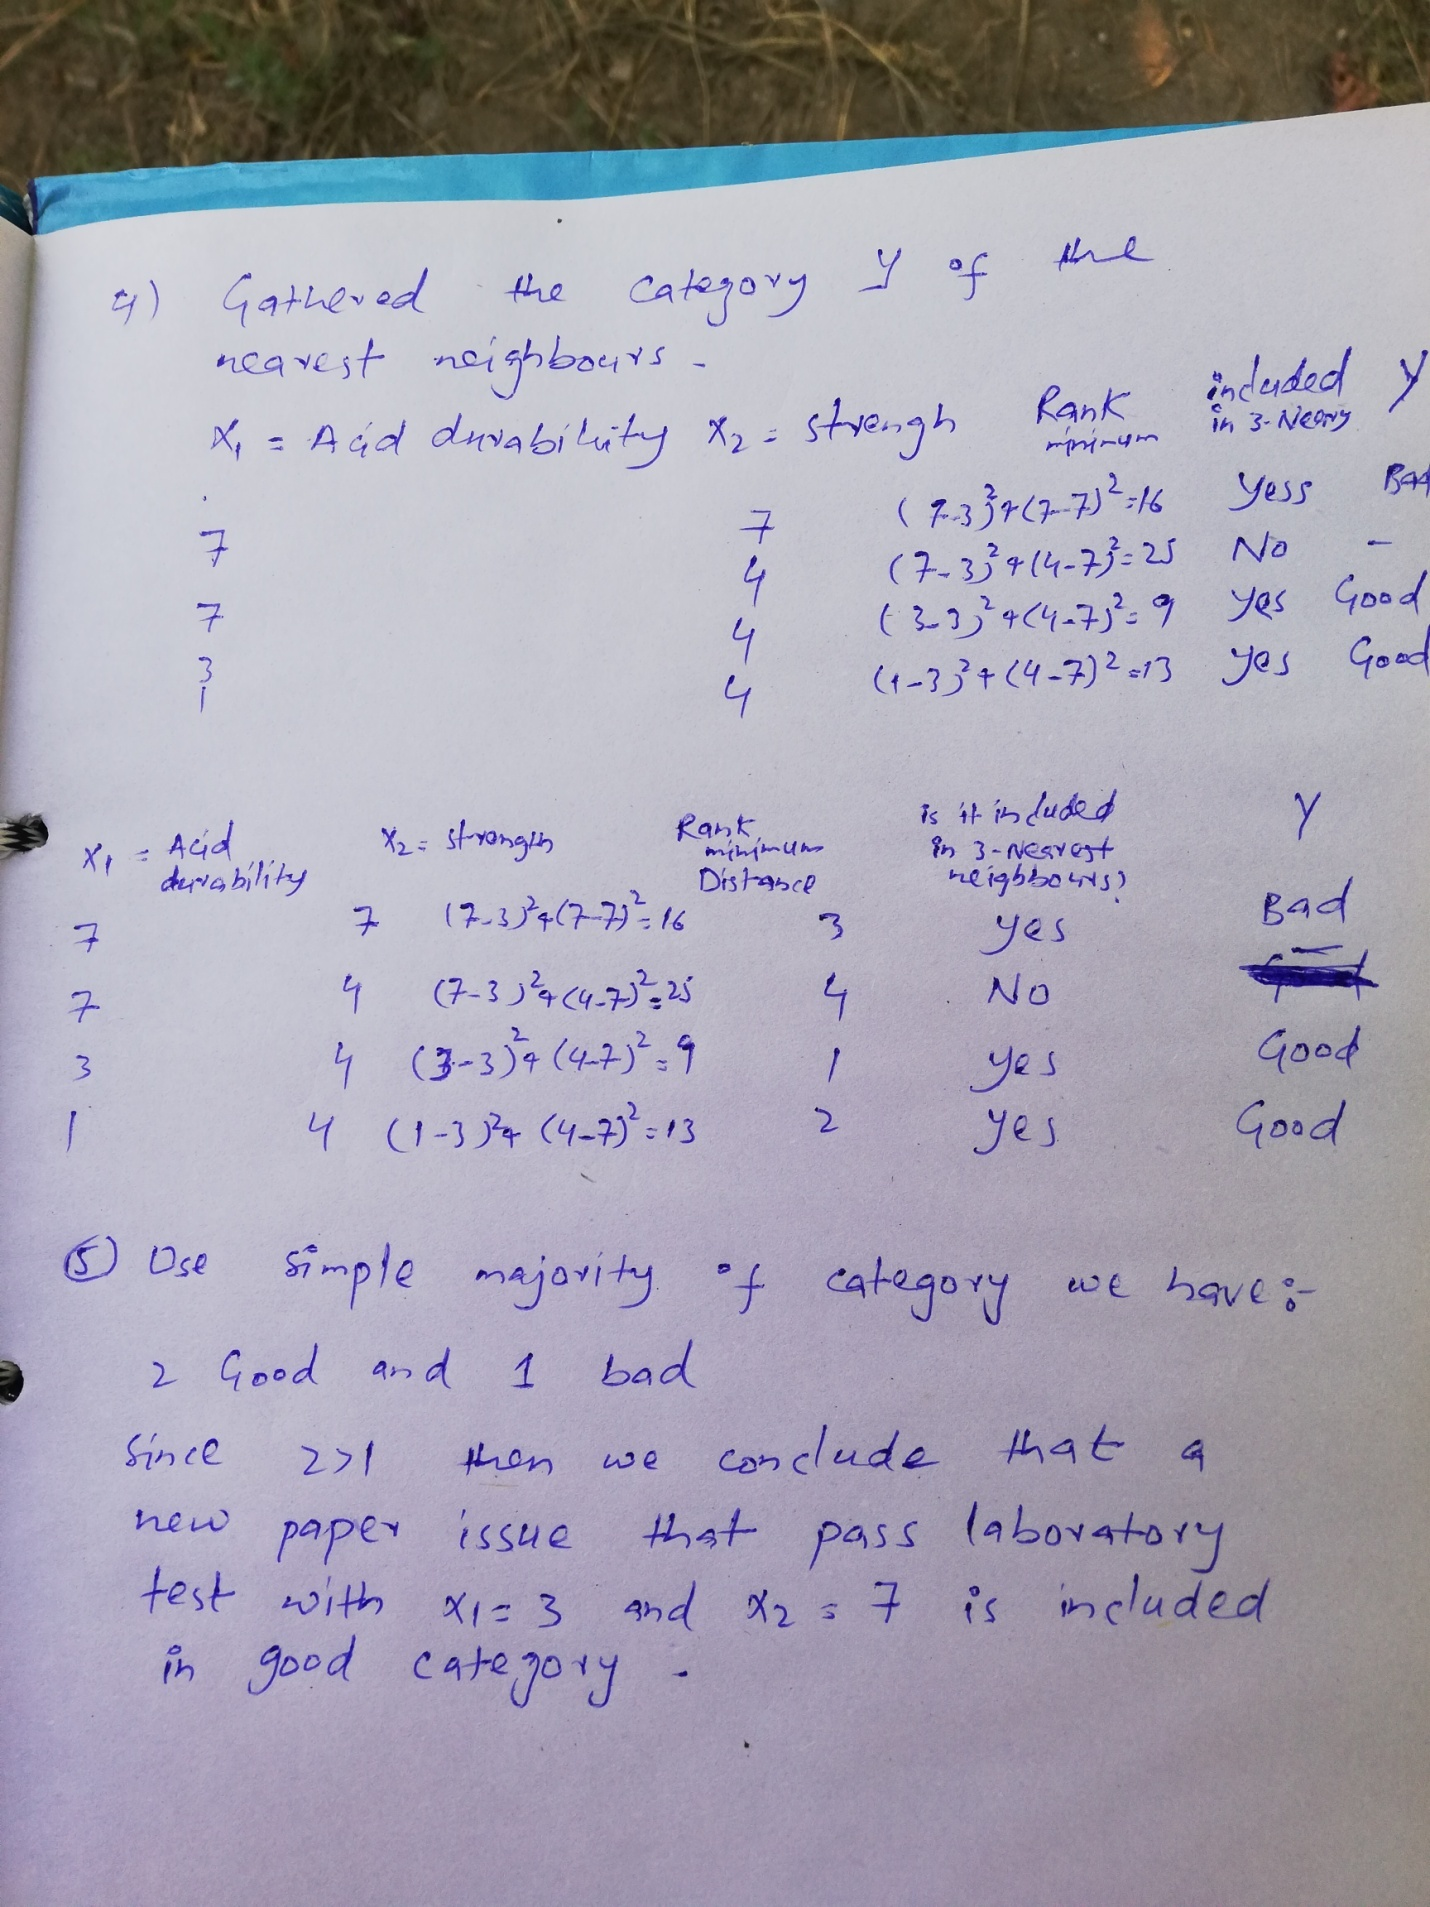 4) Gathered the category Y of the
nearest neighbours -
X₁ = Acid durability X₂ = strengh Rank minimum included in 3-Neary Y
7 7 (7-3)²+(7-7)²=16 Yess Bad
7 4 (7-3)²+(4-7)²=25 No -
3 4 (3-3)²+(4-7)²=9 Yes Good
1 4 (1-3)²+(4-7)²=13 Yes Good
X₁ = Acid durability X₂ = strength Rank minimum Distance is it included in 3-Nearest neighbours? Y
7 7 (7-3)²+(7-7)²=16 3 yes Bad
7 4 (7-3)²+(4-7)²=25 4 No -
3 4 (3-3)²+(4-7)²=9 1 yes Good
1 4 (1-3)²+(4-7)²=13 2 yes Good
⑤ Use simple majority of category we have:-
2 Good and 1 bad
Since 2>1 then we conclude that a
new paper issue that pass laboratory
test with X₁=3 and X₂=7 is included
in good category.